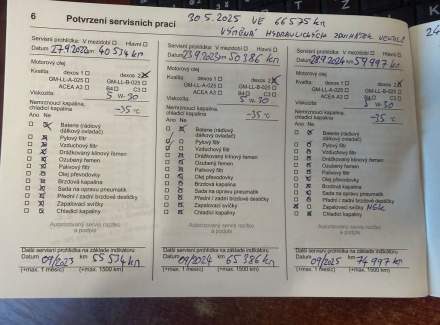 6 Potvrzení servisních prací 30.5.2025 VE 66 575 km
VÝMĚNA HYDRAULICKÝCH ZDVIHÁTEK VENTILŮ
24
Servisní prohlídka: V mezidobí Hlavní
Datum 27.9.2022 km 40 534 km
Motorový olej
Kvalita: dexos 1 dexos 2
GM-LL-A-025 GM-LL-B-025
ACEA A3 B4 C3
Viskozita: 5 W-30
Nemrznoucí kapalina,
chladicí kapalina -35 °C
Ano Ne
Baterie (rádiový
dálkový ovladač)
Pylový filtr
Vzduchový filtr
Drážkovaný klínový řemen
Ozubený řemen
Palivový filtr
Olej převodovky
Brzdová kapalina
Sada na opravu pneumatik
Přední / zadní brzdové destičky
Zapalovací svíčky
Chladicí kapaliny
Autorizovaný servis razítko
a podpis
Další servisní prohlídka na základě indikátoru
Datum 09/2023 km 55 534 km
(+max. 1 měsíc) (+max. 1500 km)
Servisní prohlídka: V mezidobí Hlavní
Datum 23.9.2023 km 50 386 km
Motorový olej
Kvalita: dexos 1 dexos 2
GM-LL-A-025 GM-LL-B-025
ACEA A3 B4 C3
Viskozita: 5 W-30
Nemrznoucí kapalina,
chladicí kapalina -35 °C
Ano Ne
Baterie (rádiový
dálkový ovladač)
Pylový filtr
Vzduchový filtr
Drážkovaný klínový řemen
Ozubený řemen
Palivový filtr
Olej převodovky
Brzdová kapalina
Sada na opravu pneumatik
Přední / zadní brzdové destičky
Zapalovací svíčky
Chladicí kapaliny
Autorizovaný servis razítko
a podpis
Další servisní prohlídka na základě indikátoru
Datum 09/2024 km 65 386 km
(+max. 1 měsíc) (+max. 1500 km)
Servisní prohlídka: V mezidobí Hlavní
Datum 28.9.2024 km 59 997 km
Motorový olej
Kvalita: dexos 1 dexos 2
GM-LL-A-025 GM-LL-B-025
ACEA A3 B4 C3
Viskozita: 5 W-30
Nemrznoucí kapalina,
chladicí kapalina -35 °C
Ano Ne
Baterie (rádiový
dálkový ovladač)
Pylový filtr
Vzduchový filtr
Drážkovaný klínový řemen
Ozubený řemen
Palivový filtr
Olej převodovky
Brzdová kapalina
Sada na opravu pneumatik
Přední / zadní brzdové destičky
Zapalovací svíčky NGK
Chladicí kapaliny
Autorizovaný servis razítko
a podpis
Další servisní prohlídka na základě indikátoru
Datum 09/2025 km 74 997 km
(+max. 1 měsíc) (+max. 1500 km)